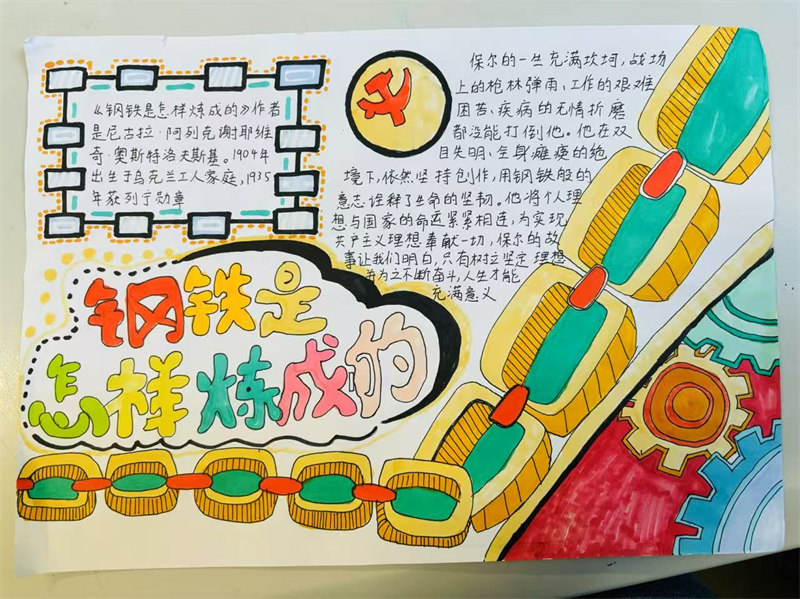 《钢铁是怎样炼成的》作者
是尼古拉·阿列克谢耶维
奇·奥斯特洛夫斯基。1904年
出生于乌克兰工人家庭,1935
年获列宁勋章
保尔的一生充满坎坷,战场
上的枪林弹雨、工作的艰难
困苦、疾病的无情折磨
都没能打倒他。他在双
目失明、全身瘫痪的绝
境下,依然坚持创作,用钢铁般的
意志诠释了生命的坚韧。他将个人理
想与国家的命运紧紧相连,为实现
共产主义理想奉献一切,保尔的故
事让我们明白,只有树立坚定理想
并为之不断奋斗,人生才能
充满意义
钢铁是
怎样炼成的